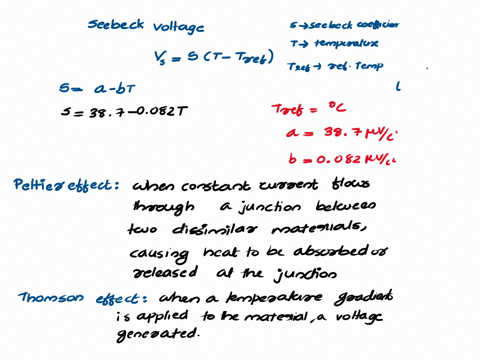 Seebeck voltage
S → seebeck coefficien
Vs = S (T - Tref)
T → temperature
Tref → ref. Temp
S = a - bT
S = 38.7 - 0.082T
Tref = °C
a = 38.7 μV/c
b = 0.082 μV/c
Peltier effect: when constant current flows
through a junction between
two dissimilar materials,
causing heat to be absorbed or
released at the junction
Thomson effect: when a temperature gradient
is applied to the material, a voltage
generated.